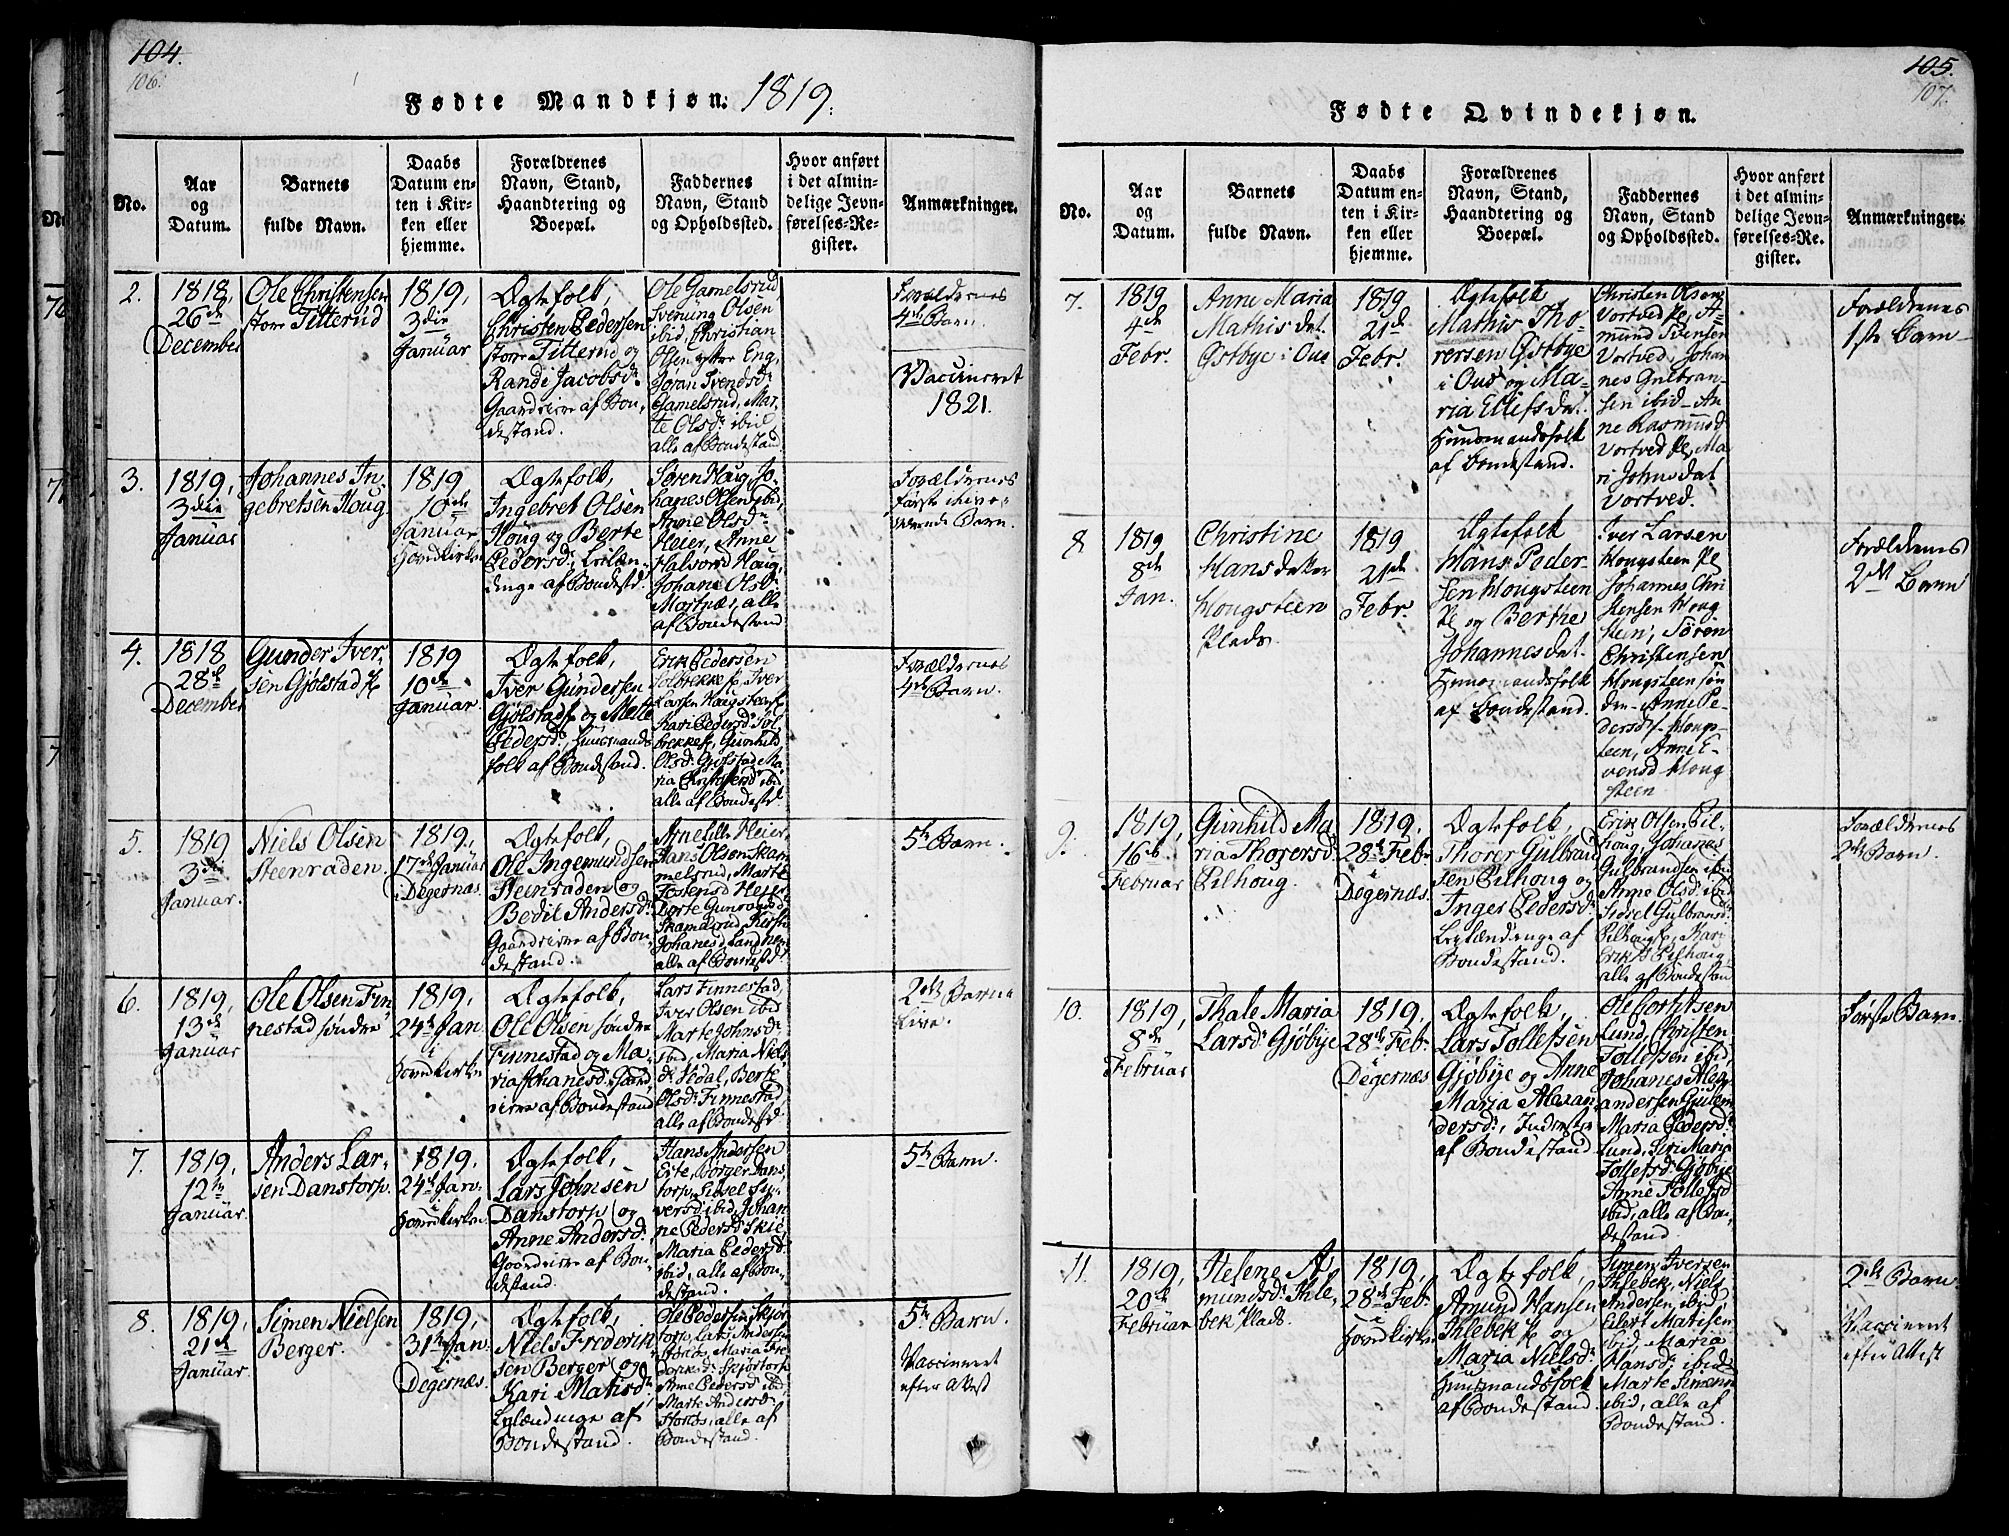 104.
106.
Fødte Mandkjøn. 1819.
No.
Aar
og
Datum.
Barnets
fulde Navn.
Daabs
Datum en-
ten i Kir-
ken eller
hjemme.
Forældrenes
Navn, Stand,
Haandtering og
Boepæl.
Faddernes
Navn, Stand
og Opholdssted.
Hvor anført
i det almin-
delige Jevn-
førelses-Re-
gister.
Anmærkninger.
2.
1818,
26de
December
Ole Christensen
store Titterud
1819,
3die
Januar
Ægtefolk,
Christen Pedersen
store Titterud og
Randi Jacobsdr.
Gaardeiere af Bon-
destand.
Ole Gamelsrud,
Svenung Olsen
ibid, Christian
Olsen yttre Eng,
Jøran Svendsdr
Gamelsrud, Mar-
te Olsdr ibid
alle af Bondestand
Forældrenes
4de Barn.
Vaccineret
1821.
3.
1819,
3die
Januar
Johannes In-
gebretsen Houg
1819,
10de
Januar
Hovedkirken
Ægtefolk,
Ingebret Olsen
Houg og Berte
Pedersdr, Leilæn-
dinge af Bondestd.
Søren Haug, Jo-
hanes Olsen ibid,
Anne Olsdr
Heier, Anne
Halvorsd Haug,
Johane Olsdr
Mortnæs, alle
af Bondestand
Forældrenes
første
Barn.
4.
1818
28de
December
Gunder Iver-
sen Gjølstad
1819
10de
Januar.
Ægtefolk,
Iver Gundersen
Gjølstad og Mette
Pedersdr, Huusmands
folk af Bondestand.
Erik Pedersen
Solbrekke, Iver
Larsen Haugsteen
Kari Pedersdr Sol
brekke, Gunhild
Olsdr Gjølstad Ma-
ria Christensdr ibid
alle af Bondestd
Forældrenes
4de Barn.
5.
1819
3die
Januar.
Niels Olsen
Steenraden.
1819,
17de Januar
i Degernæs.
Ægtefolk,
Ole Ingemundsen
Steenraden og
Bedil Andersdr.
Gaardeiere af Bon-
destand.
Arne Heier
Hans Olsen Skam-
melsrud, Marte
Heier
Dorte
Skamelsrud, Kirsti
Johanesd
alle af Bondestd
5te Barn.
6.
1819,
13de
Januar
Ole Olsen Fin
nestad søndre
1819,
24de Jan
i
Hovedkirken
Ægtefolk,
Ole Olsen søndre
Finnestad og Ma-
ria Johanesdr. Gaard-
eiere af Bondestand
Lars Finnestad,
Iver Olsen ibid
Marte Johnsdr
ibid, Maria Niels
dr Vedal, Berte
Olsdr Finnestad,
alle af Bondestd
2det Barn
7.
1819,
12te
Januar.
Anders Lar-
sen Danstorp.
1819.
24de Jan.
i
Hovedkirken.
Ægtefolk,
Lars Johnsen
Danstorp og
Anne Andersdr.
Gaardeiere af Bon-
destand.
Hans Andersen
Este, Borger Dans
torp, Sidsel Sy-
versd ibid, Johan-
ne Pedersdr Skie
Maria Pedersdr
ibid, alle af Bon-
destand.
5te Barn.
8.
1819,
21de
Januar.
Simen Nielsen
Berger.
1819,
31te Jan.
i
Degernæs.
Ægtefolk,
Niels Friderik-
sen Berger og
Kari Matisdr.
Leilændinge af
Bondestand.
Ole Pedersen Skjør
torp, Lars Andersen
Maria Fre-
deriksdr Skjørtorp
Anne Pedersdr ibid,
Marte Andersdr
alle af
Bondestand.
5te Barn.
Vaccineret
efter Attest
105.
107.
Fødte Qvindekjøn.
No.
Aar
og
Datum.
Barnets
fulde Navn.
Daabs
Datum en-
ten i Kir-
ken eller
hjemme.
Forældrenes
Navn, Stand,
Haandtering og
Boepæl.
Faddernes
Navn, Stand
og Opholdssted.
Hvor anført
i det almin-
delige Jevn-
førelses-Re-
gister.
Anmærkninger.
7.
1819
4de
Febr.
Anne Maria
Mathisdat.
Østbye i Ous
1819
21de
Febr.
Ægtefolk
Mathis Tho-
rersen Østbye
i Ous og Ma-
ria Ellefsdat.
Huusmandsfolk
af Bondestand.
Christen Olsen
Vortved Pl, A-
mund Svensen
Vortved, Johan
nes Gulbran-
sen ibid - An-
ne Rasmusd
Vortved Pl, Ma-
ri Johnsdat
Vortved.
Forældrenes
1ste Barn
8
1819
8de
Jan.
Christine
Hansdatter
Hougsteen
Plads.
1819
21de
Febr.
Ægtefolk
Hans Peder-
sen Hougsteen
Pl og Berthe
Johannesdat.
Huusmandsfolk
af Bondestand.
Iver Larsen
Hougsteen Pl
Johannes Chri
stensen Houg
steen, Søren
Christensen
Hougsteen søn
dre - Anne Pe-
dersdr Houg-
steen, Anne E-
vensd Houg
steen
Forældrenes
2det Barn
9.
1819,
16de
Februar
Gunhild Ma-
ria Thorersdr
Pilhoug.
1819.
28de Febr
i
Degernæs.
Ægtefolk,
Thorer Gulbrand
sen Pilhoug og
Inger Pedersdr.
Leilændinge af
Bondestand.
Erik Olsen Pil-
houg, Johanes
Gulbrandsen ibid
Anne Olsdr ibid
Sidsel Gulbransdr
Pilhoug, Kari
Eriksd Pilhoug,
alle af Bondestand
Forældrenes
2det Barn.
10.
1819,
8de
Februar
Thale Maria
Larsdr Gjøbye
1819,
28de Febr.
i
Degernæs
Ægtefolk,
Lars Tollefsen
Gjøbye og Anne
Maria Alexan
dersdr, Inderster
af Bondestand
Lund, Christen
Tollefsen ibid
Johanes Alex-
andersen
Maria Pedersdr
Lund, Siri Marie
Tollefsdr Gjøbye
Anne Tollefsd
ibid, alle af Bon-
destand
Første Barn.
11.
1819,
20de
Februar
Helene A-
mundsdr Ihle-
bek Plads.
1819.
28de Feb.
i
Hovedkirken
Ægtefolk,
Amund Hansen
Ihlebek og
Maria Nielsdr
Huusmandsfolk
af Bondestand.
Simen Iversen
Ihlebek, Niels
Andersen ibid,
Eilert Matisen
ibid, Maria
Hansdr ibid
Marte Simensd
ibid, alle af
Bondestand.
2det Barn
Vaccineret
efter Attest